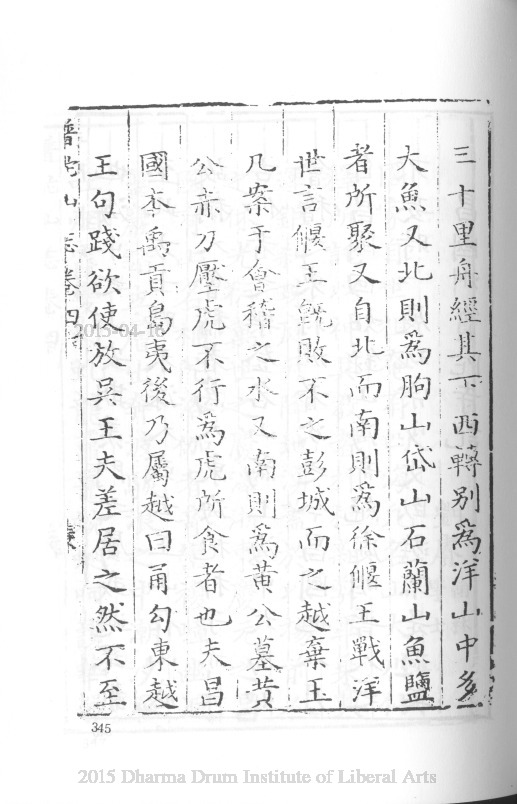 三十里舟經其下西轉別爲洋山中多
大魚又北則爲朐山岱山石蘭山魚鹽
者所聚又自北而南則爲徐偃王戰洋
世言偃王旣敗不之彭城而之越棄玉
几案于會稽之水又南則爲黃公墓黃
公赤刀壓虎不行爲虎所食者也夫昌
國本禹貢島夷後乃屬越曰甬勾東越
王句踐欲使放吳王夫差居之然不至
普陀山志卷四
345
2015-04-16
2015 Dharma Drum Institute of Liberal Arts